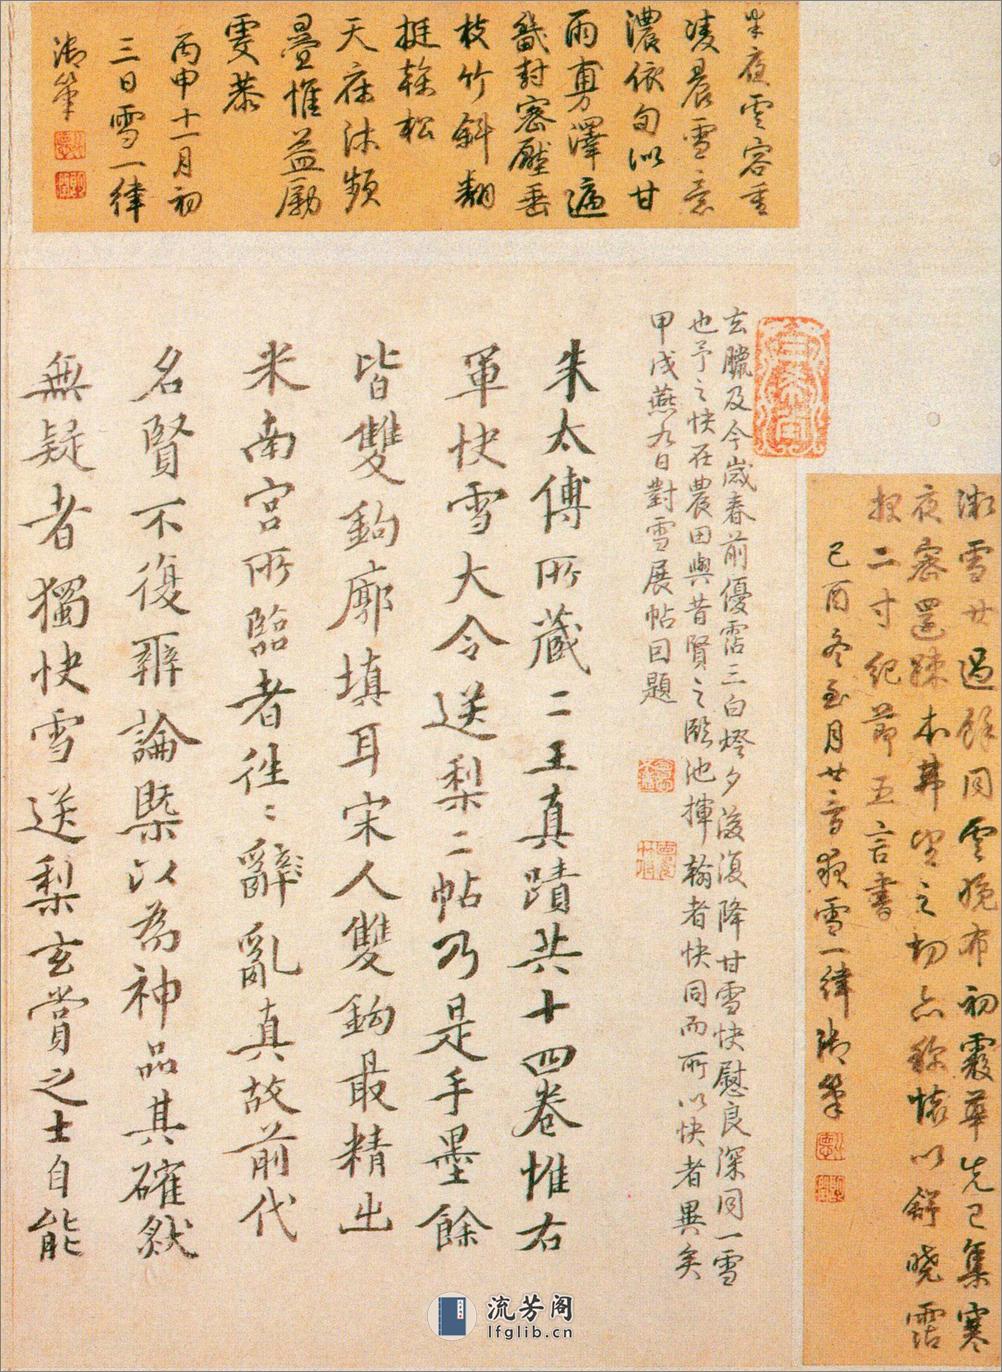 半夜雲容重
凌晨雪意
濃依旬似甘
雨專澤遍
畿封密壓垂
枝竹斜翻
挺榦松
天庥沐頻
疊惟益勵
雯恭
丙申十一月初
三日雪一律
御筆
微雪廿過餘同雲晚布初霰華先已集寒
夜密還疎本弗望之切亦稱懷以舒曉霑
報二寸紀節五言書
己酉冬至月廿二日夜雪一律御筆
玄臘及今歲春前優霑三白燈夕後復降甘雪快慰良深同一雪
也予之快在農田與昔賢之臨池揮翰者快同而所以快者異矣
甲戌燕九日對雪展帖因題
朱太傅所藏二王真蹟共十四卷惟右
軍快雪大令送梨二帖乃是手墨餘
皆雙鉤廓填耳宋人雙鉤最精出
米南宮所臨者往〻辭亂真故前代
名賢不復辨論槩以為神品其確然
無疑者獨快雪送梨玄賞之士自能
流芳阁
lfglib.cn